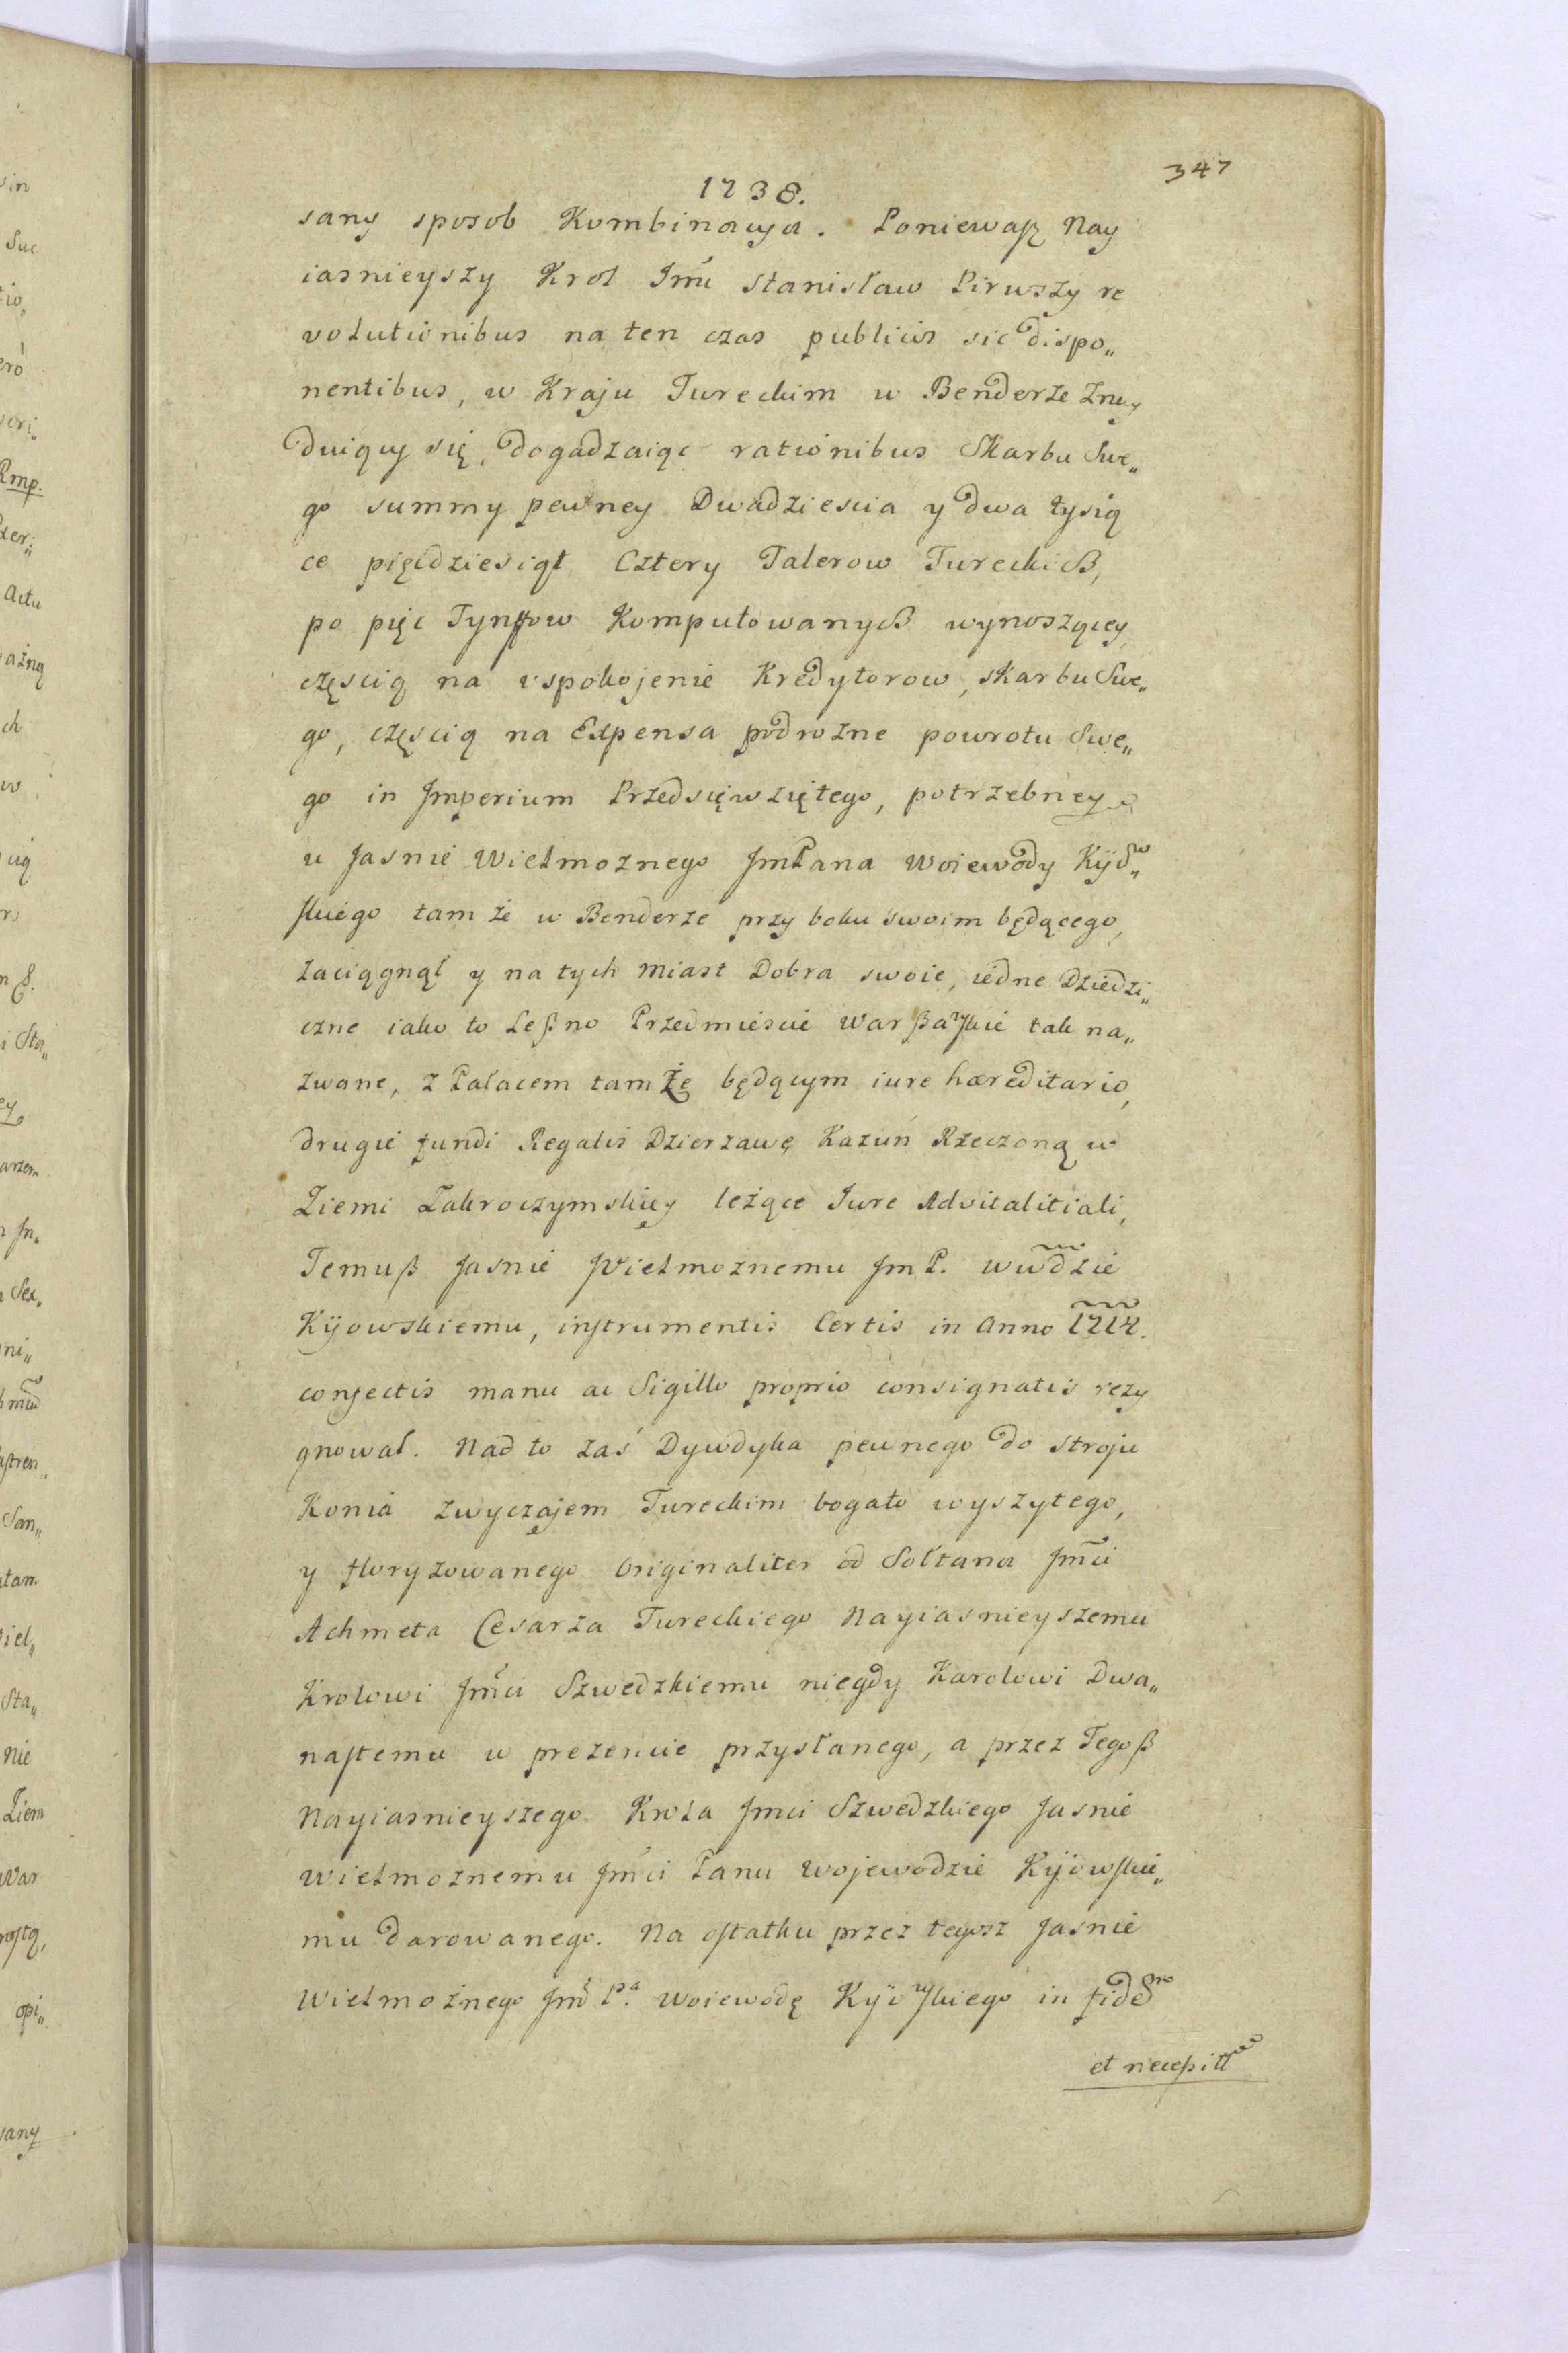 347
1738.
sany sposob Kombinacya. Poniewasz Nay
iasnieyszy Krol Jmći Stanisław Pirwszy re
volutionibus na ten czas publicis sic dispo„
nentibus, w Kraju Tureckim w Benderze znay
duiący się, dogadzaiąc rationibus Skarbu Swe„
go summy pewney Dwadziescia y dwa tysią
ce pięcdziesiąt Cztery Talerow Tureckich,
po pięc Tynffow Komputowanych wynoszącey,
częscią na uspokojenie Kredytorow, skarbu Swe„
go, częscią na Expensa podrozne powrotu Swe„
go in Jmperium Przedsięwziętego, potrzebney
u Jasnie Wielmoznego JmPana Woiewody Kijow„
skiego tam że w Benderze przy boku swoim będącego,
zaciągnął y na tych miast Dobra swoie, iedne Dziedzi„
czne iako to Leßno Przedmieście Warßawskie tak na„
zwane, z Pałacem tamże będącym iure hæreditario,
drugie fundi Regalis Dzierzawę Kazuń Rzeczoną w
Ziemi Zakroczymskiey leżące Jure Advitalitiali,
Temuß Jasnie Wielmoznemu Jm P. Wwdzie
Kijowskiemu, instrumentis Certis in Anno 1714.
confectis manu ac Sigillo proprio consignatis rezy
gnował. Nad to zaś Dywdyka pewnego do stroju
Konia zwyczajem Tureckim bogato wyszytego,
y floryzowanego Originaliter od Sołtana Jmći
Achmeta Cesarza Tureckiego Nayiasnieyszemu
Krolowi Jmći Szwedzkiemu niegdy Karolowi Dwa„
nastemu w prezencie przysłanego, a przez Tegoß
Nayiasnieyszego Krola Jmci Szwedzkiego Jasnie
Wielmoznemu Jmći Panu Wojewodzie Kijowskie„
mu darowanego. Na ostatku przez tegosz Jasnie
Wielmożnego Jmć Pa. Woiewodę Kijowskiego in fidem